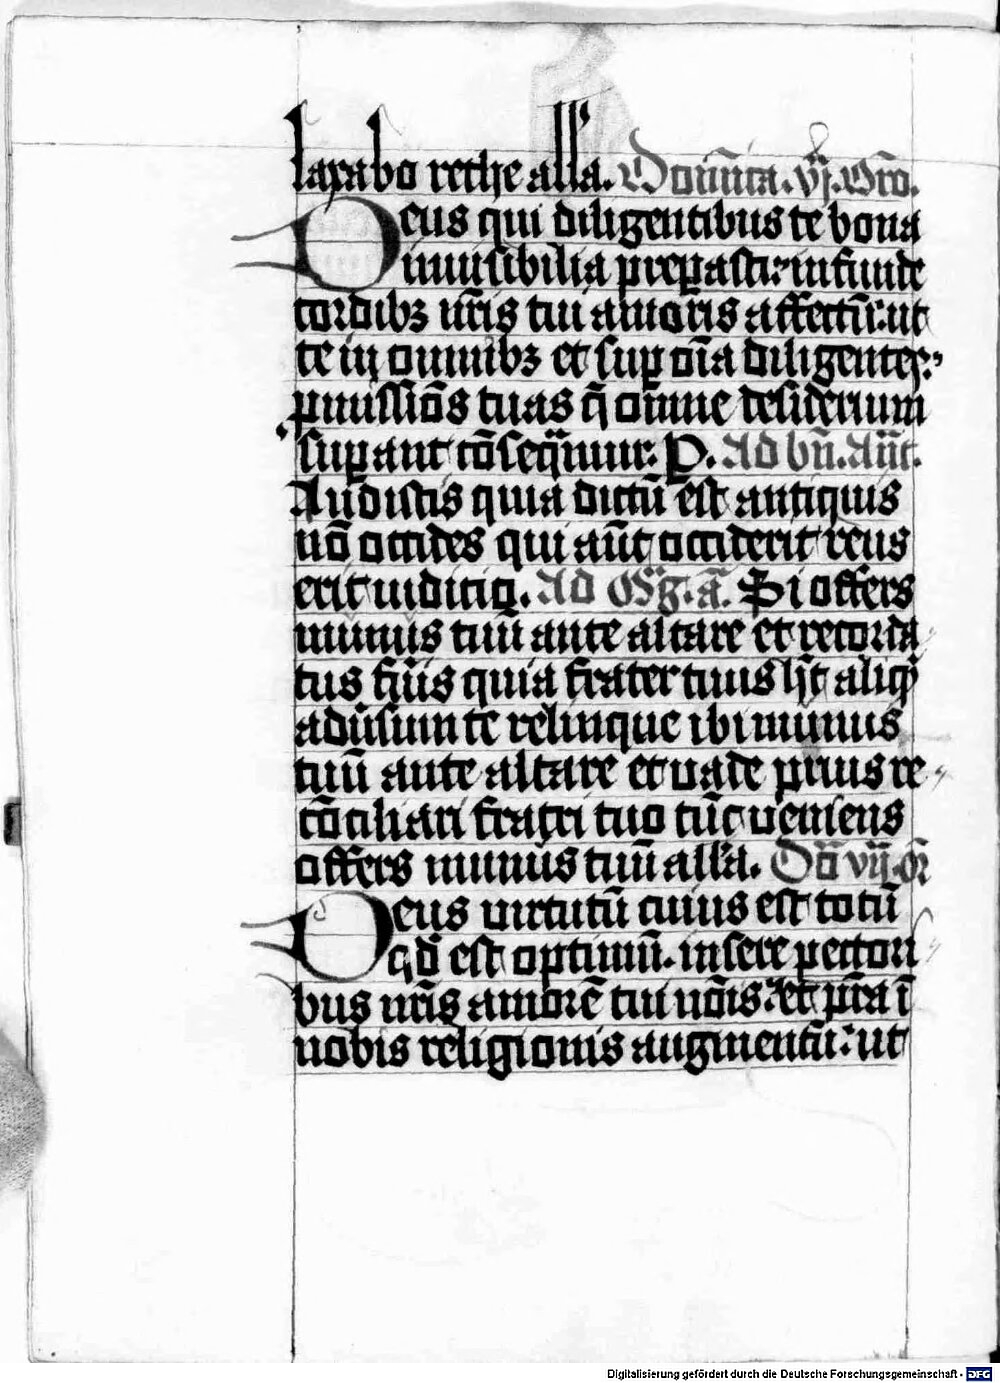 laxabo rethe all'a. Domīica. vj. Oro.
Deus qui diligentibus te bona
inuisibilia preparasti: infunde
cordibꝫ nr̄is tui amoris affectū: ut
te in omnibꝫ et suꝑ oīa diligentes:
ꝓmissiōs tuas q̄ omne desiderium
suꝑant cōseqͥmur. P. Ad bn̄. Añt.
Audistis quia dictū est antiquis
nō occides qui aūt occiderit reus
erit iudicio. Ad Mg̅. a̅. Si offers
munus tuū ante altare et recorda
tus fūis quia frater tuus hȝt aliqͥ
adūsum te relinque ibi munus
tuū ante altare et vade prius re
cōciliari fratri tuo tūc veniens
offers munus tuū all'a. Dn̄i vij. or̄
Deus virtutū cuius est totū
qd̄ est optimū. insere pectori
bus nr̄is amorē tui nōis: et pr̄a ī
nobis religionis augmentū: ut
Digitalisierung gefördert durch die Deutsche Forschungsgemeinschaft - DFG